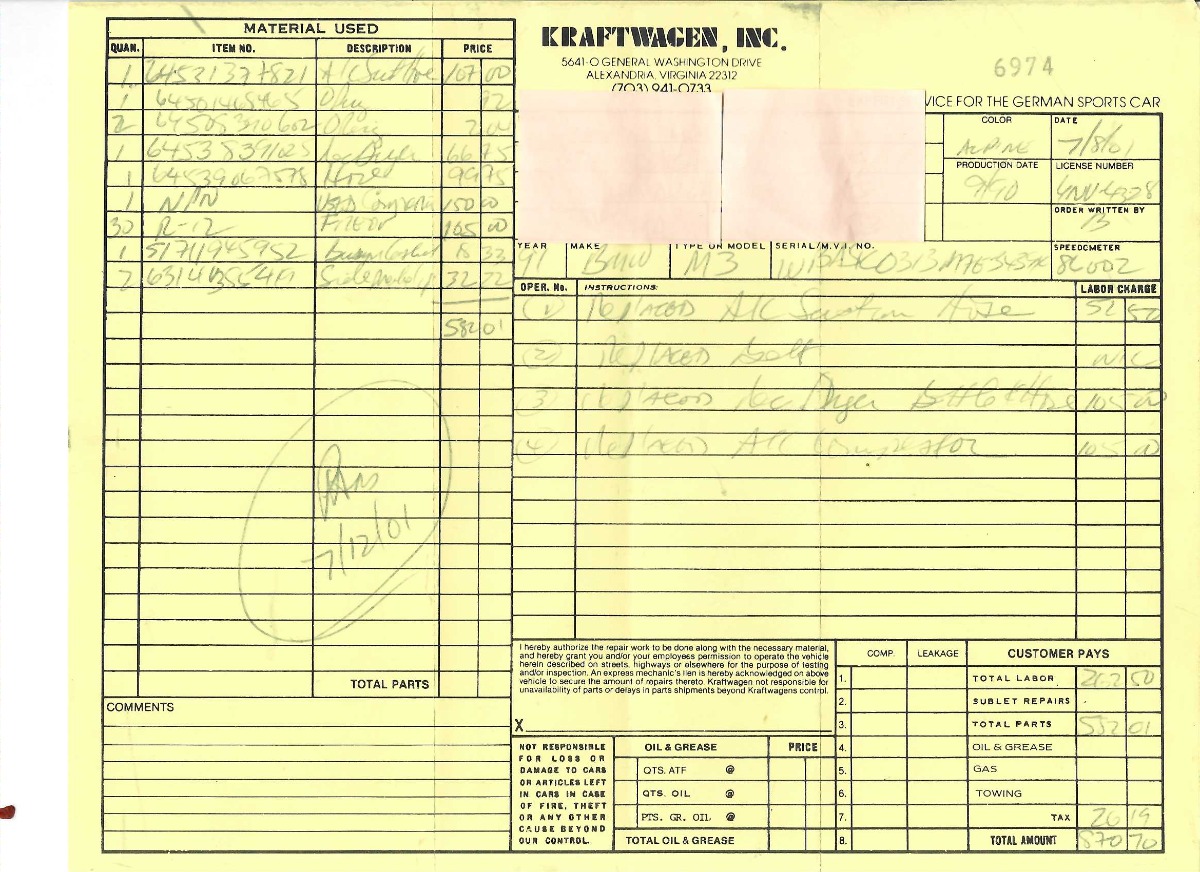 MATERIAL USED
QUAN. ITEM NO. DESCRIPTION PRICE
1 64531377821 A/C Suct Hose 107 00
1 O Ring 92
2 O Ring
1 6453839 Rec Dryer 66 75
1 Hose 99 75
1 N/N Used 150 00
30 R-12 165 00
1 51711945952 18 33
2 32 22
582 01
7/12/01
TOTAL PARTS
COMMENTS
KRAFTWAGEN, INC.
5641-O GENERAL WASHINGTON DRIVE
ALEXANDRIA, VIRGINIA 22312
(703) 941-0733
6974
VICE FOR THE GERMAN SPORTS CAR
COLOR DATE
ALPINE 7/8/01
PRODUCTION DATE LICENSE NUMBER
9/90
ORDER WRITTEN BY
YEAR MAKE TYPE OR MODEL SERIAL/M.V.I. NO. SPEEDOMETER
91 BMW M3 86002
OPER. No. INSTRUCTIONS: LABOR CHARGE
(1) Replaced A/C Suction Hose 52 50
(2) Replaced belt N/C
(3) Replaced Rec Dryer Bottle & Hose 105 00
(4) Replaced A/C Compressor 105 00
I hereby authorize the repair work to be done along with the necessary material,
and hereby grant you and/or your employees permission to operate the vehicle
herein described on streets, highways or elsewhere for the purpose of testing
and/or inspection. An express mechanic's lien is hereby acknowledged on above
vehicle to secure the amount of repairs thereto. Kraftwagen not responsible for
unavailability of parts or delays in parts shipments beyond Kraftwagens control.
X
NOT RESPONSIBLE
FOR LOSS OR
DAMAGE TO CARS
OR ARTICLES LEFT
IN CARS IN CASE
OF FIRE, THEFT
OR ANY OTHER
CAUSE BEYOND
OUR CONTROL.
OIL & GREASE PRICE
QTS. ATF @
QTS. OIL @
PTS. GR. OIL @
TOTAL OIL & GREASE
COMP. LEAKAGE CUSTOMER PAYS
1. TOTAL LABOR 262 50
2. SUBLET REPAIRS
3. TOTAL PARTS 582 01
4. OIL & GREASE
5. GAS
6. TOWING
7. TAX 26 19
8. TOTAL AMOUNT 870 70